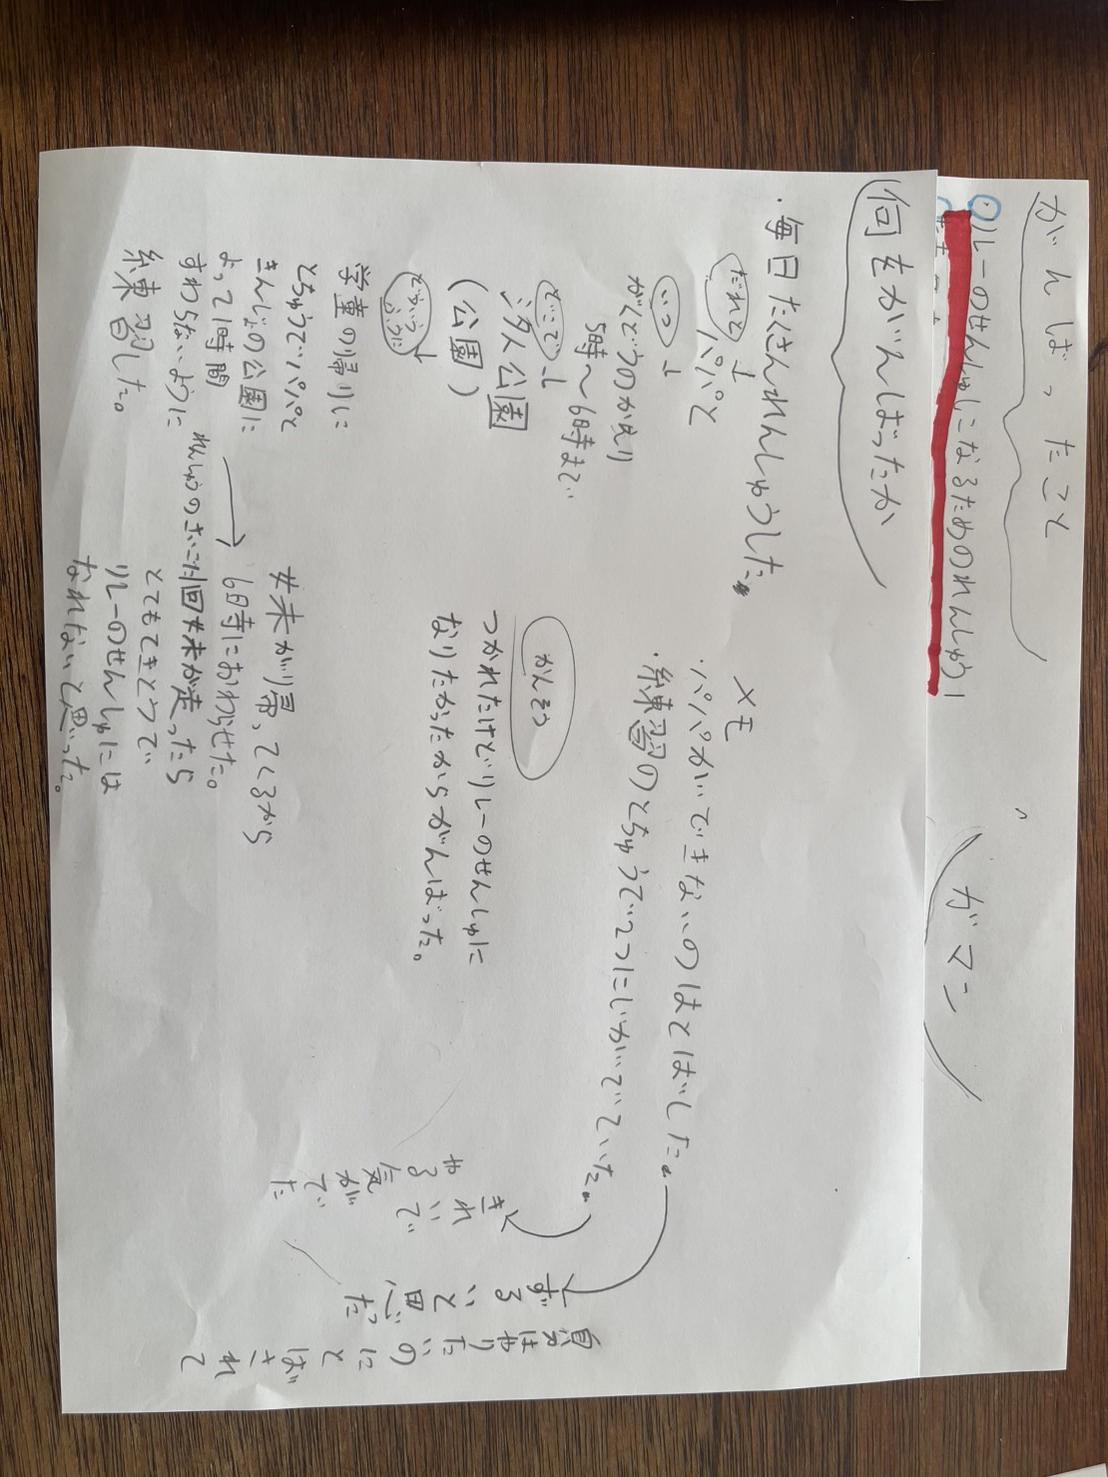 がんばったこと
リレーのせんしゅになるためのれんしゅう
ガマン
何をがんばったか
・毎日たくさんれんしゅうした。
だれと
パパと
いつ
がくどうのかえり
5時～6時まで
どこで
汐入公園
(公園)
どういうふうに
学童の帰りに
とちゅうでパパと
きんじょの公園に
よって1時間
すわらないように
練習した。
メモ
・パパができないのはとばした。
・練習のとちゅうで2つにじがでていた。
かんそう
つかれたけどリレーのせんしゅに
なりたかったからがんばった。
妹が帰ってくるから
6時におわらせた。
れんしゅうのさいご1回妹が走ったら
とてもてきとうで
リレーのせんしゅには
なれないと思った。
きれいで
やる気がでた
ずるいと思った
自分はやりたいのにとばされて